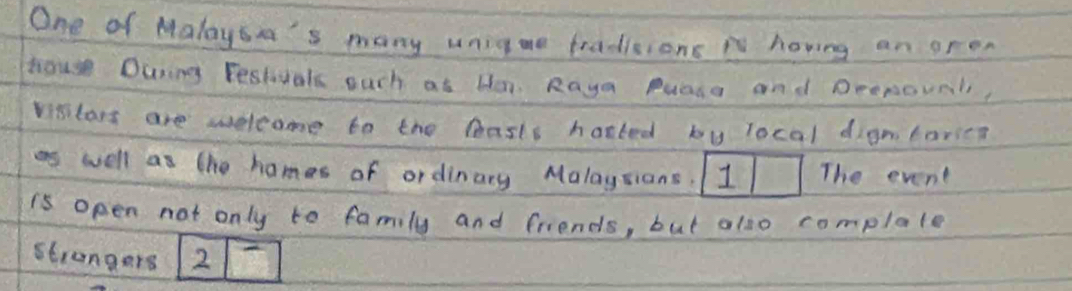 One of Malaysia's many unique traditions is having an open
house During Festivals such as Hari Raya Puasa and Deepavali,
visitors are welcome to the feasts hosted by local dignitaries
as well as the homes of ordinary Malaysians. 1 The event
is open not only to family and friends, but also complate
strangers 2